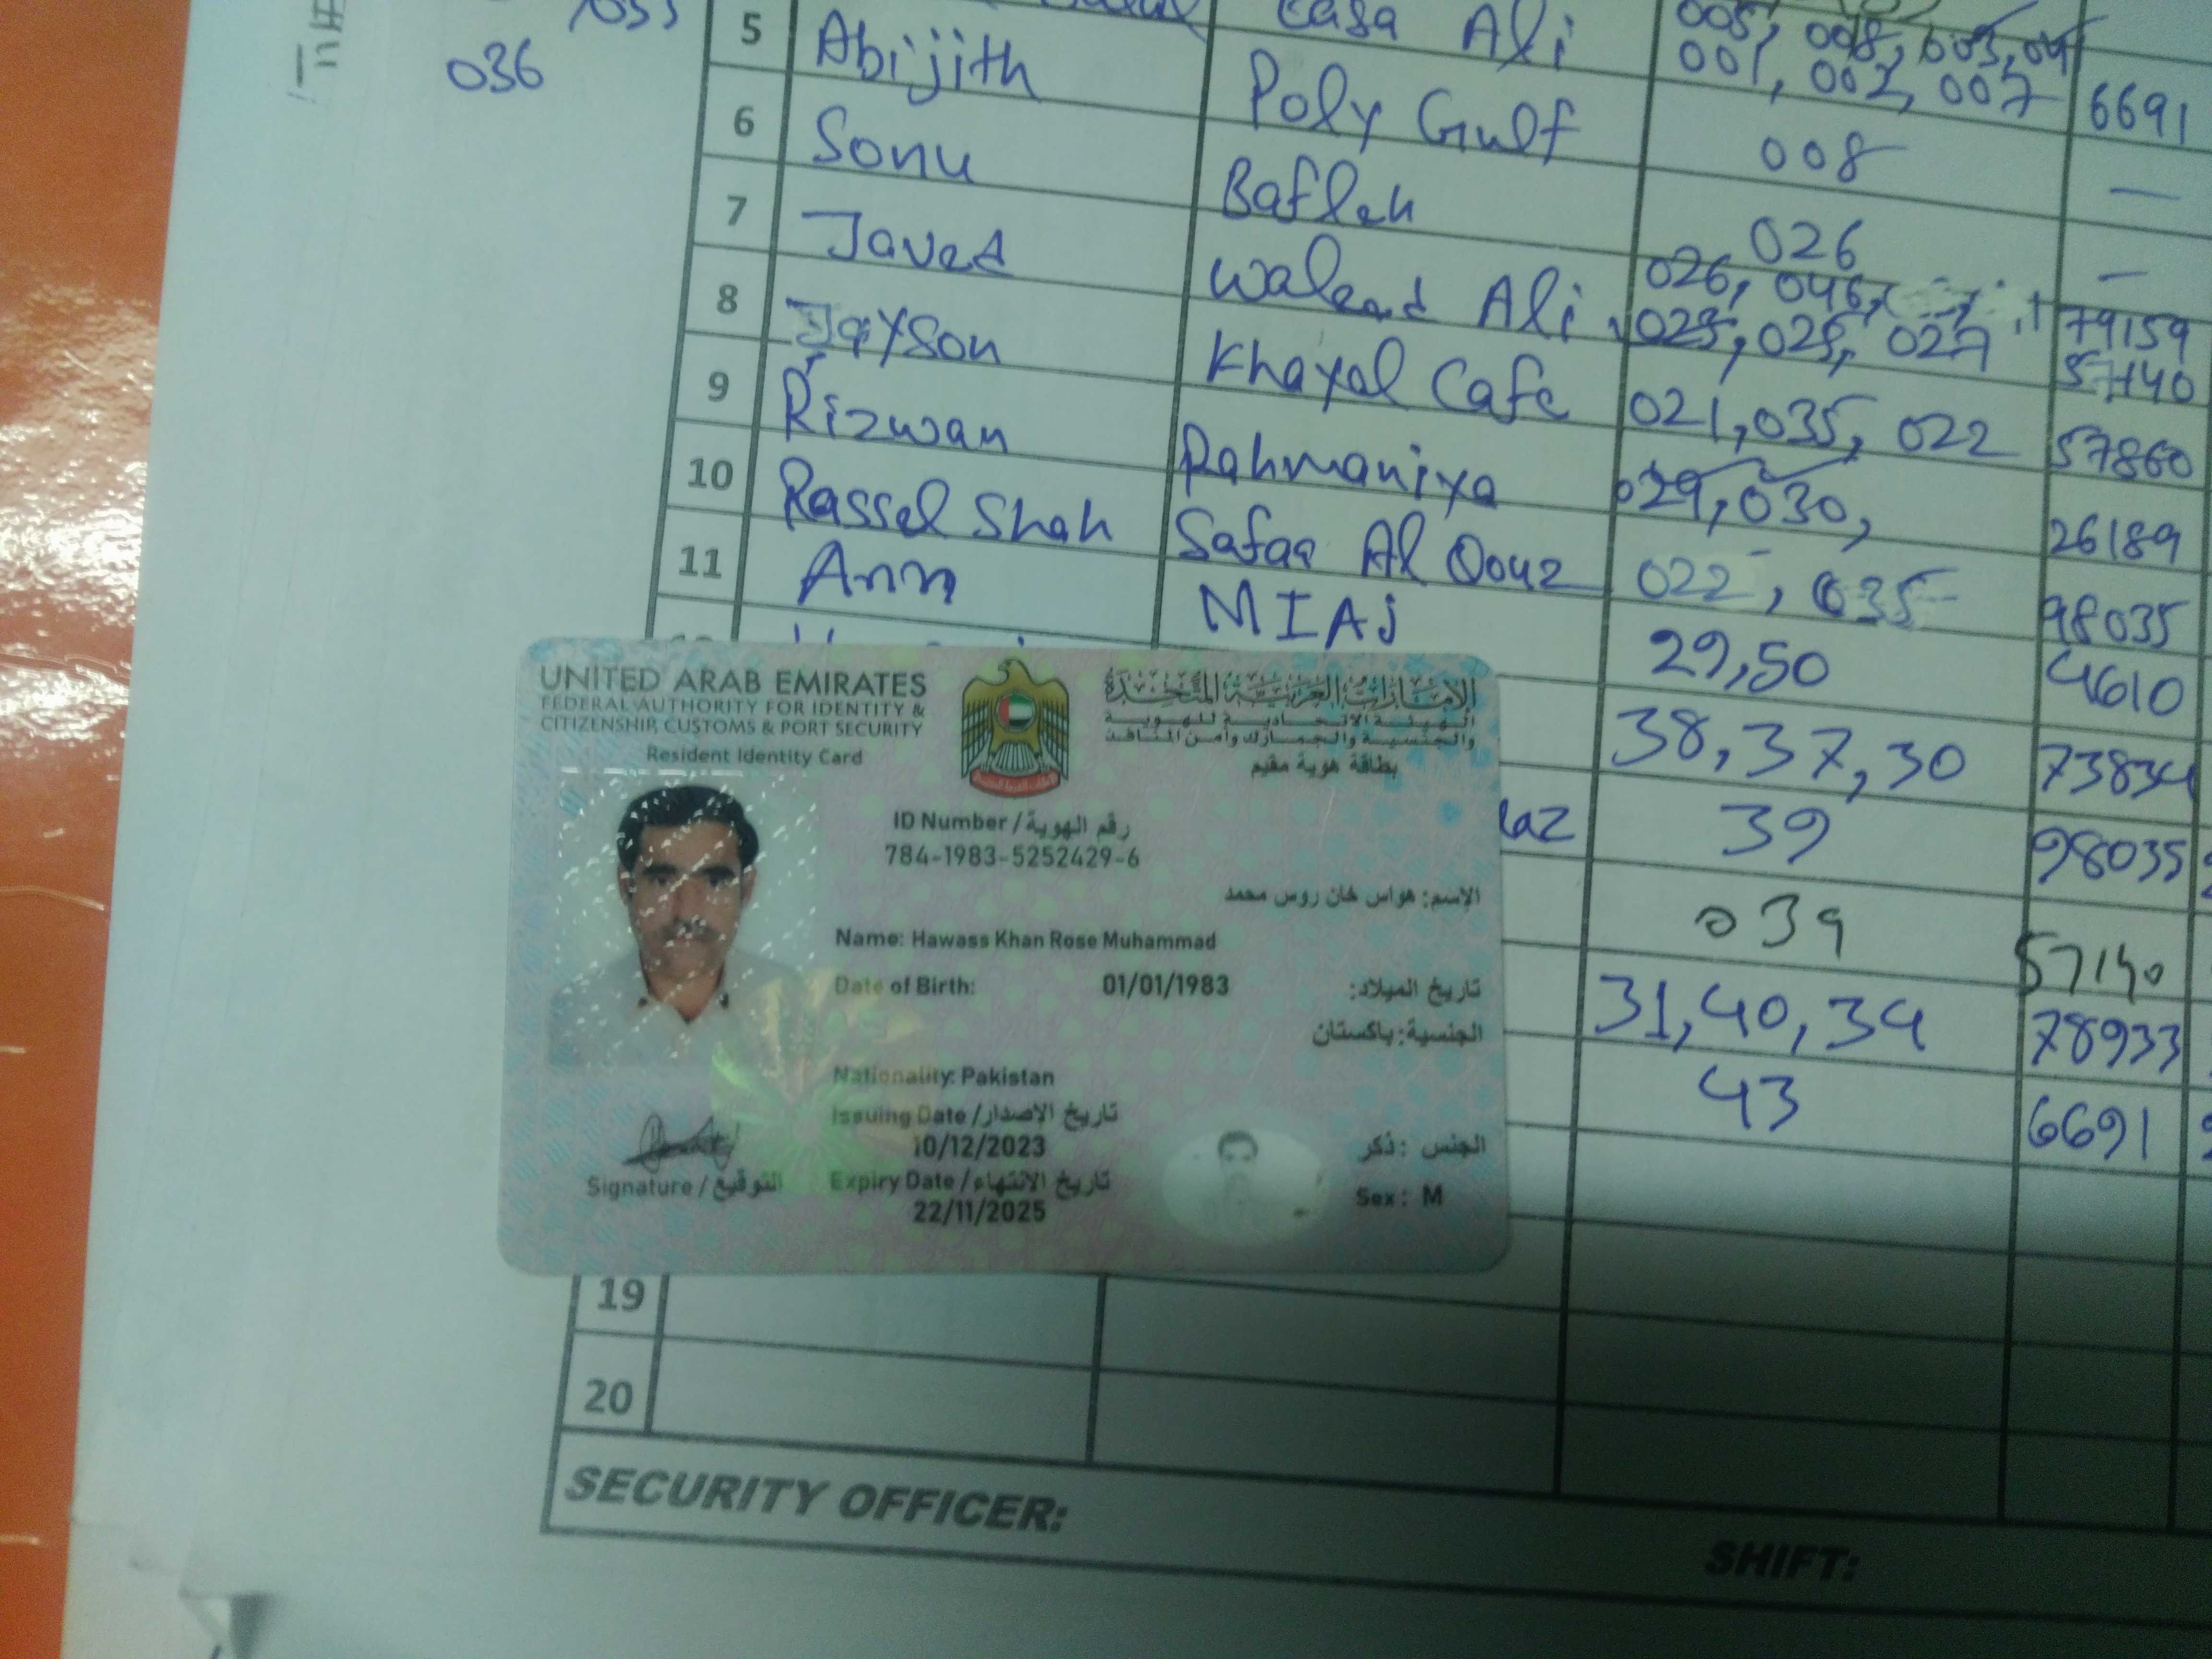 036
5 Abijith Casa Ali 008, 003, 04
001, 002, 007 6691
6 Sonu Poly Gulf 008 —
7 Javed Bafleh 026 —
8 Jayson Ali 026, 046, 79159
025, 027 57140
9 Rizwan Khayal Cafe 021, 035, 022 57860
10 Rassel Shah Rahmaniya 029, 030, 26189
11 Ann Safaa Al 022, 035 98035
MIAJ 29,50 4610
38,37,30 73834
39 98035
039 57140
31,40,34 78933
43 6691
UNITED ARAB EMIRATES
FEDERAL AUTHORITY FOR IDENTITY &
CITIZENSHIP, CUSTOMS & PORT SECURITY
Resident Identity Card
الإمارات العربية المتحدة
الهيئة الاتحادية للهوية
والجنسية والجمارك وأمن المنافذ
بطاقة هوية مقيم
ID Number / رقم الهوية
784-1983-5252429-6
الإسم: هواس خان روس محمد
Name: Hawass Khan Rose Muhammad
Date of Birth: 01/01/1983 تاريخ الميلاد:
الجنسية: باكستان
Nationality: Pakistan
Issuing Date / تاريخ الاصدار
10/12/2023
الجنس: ذكر
Signature / التوقيع
Expiry Date / تاريخ الانتهاء
22/11/2025
Sex: M
19
20
SECURITY OFFICER:
SHIFT: